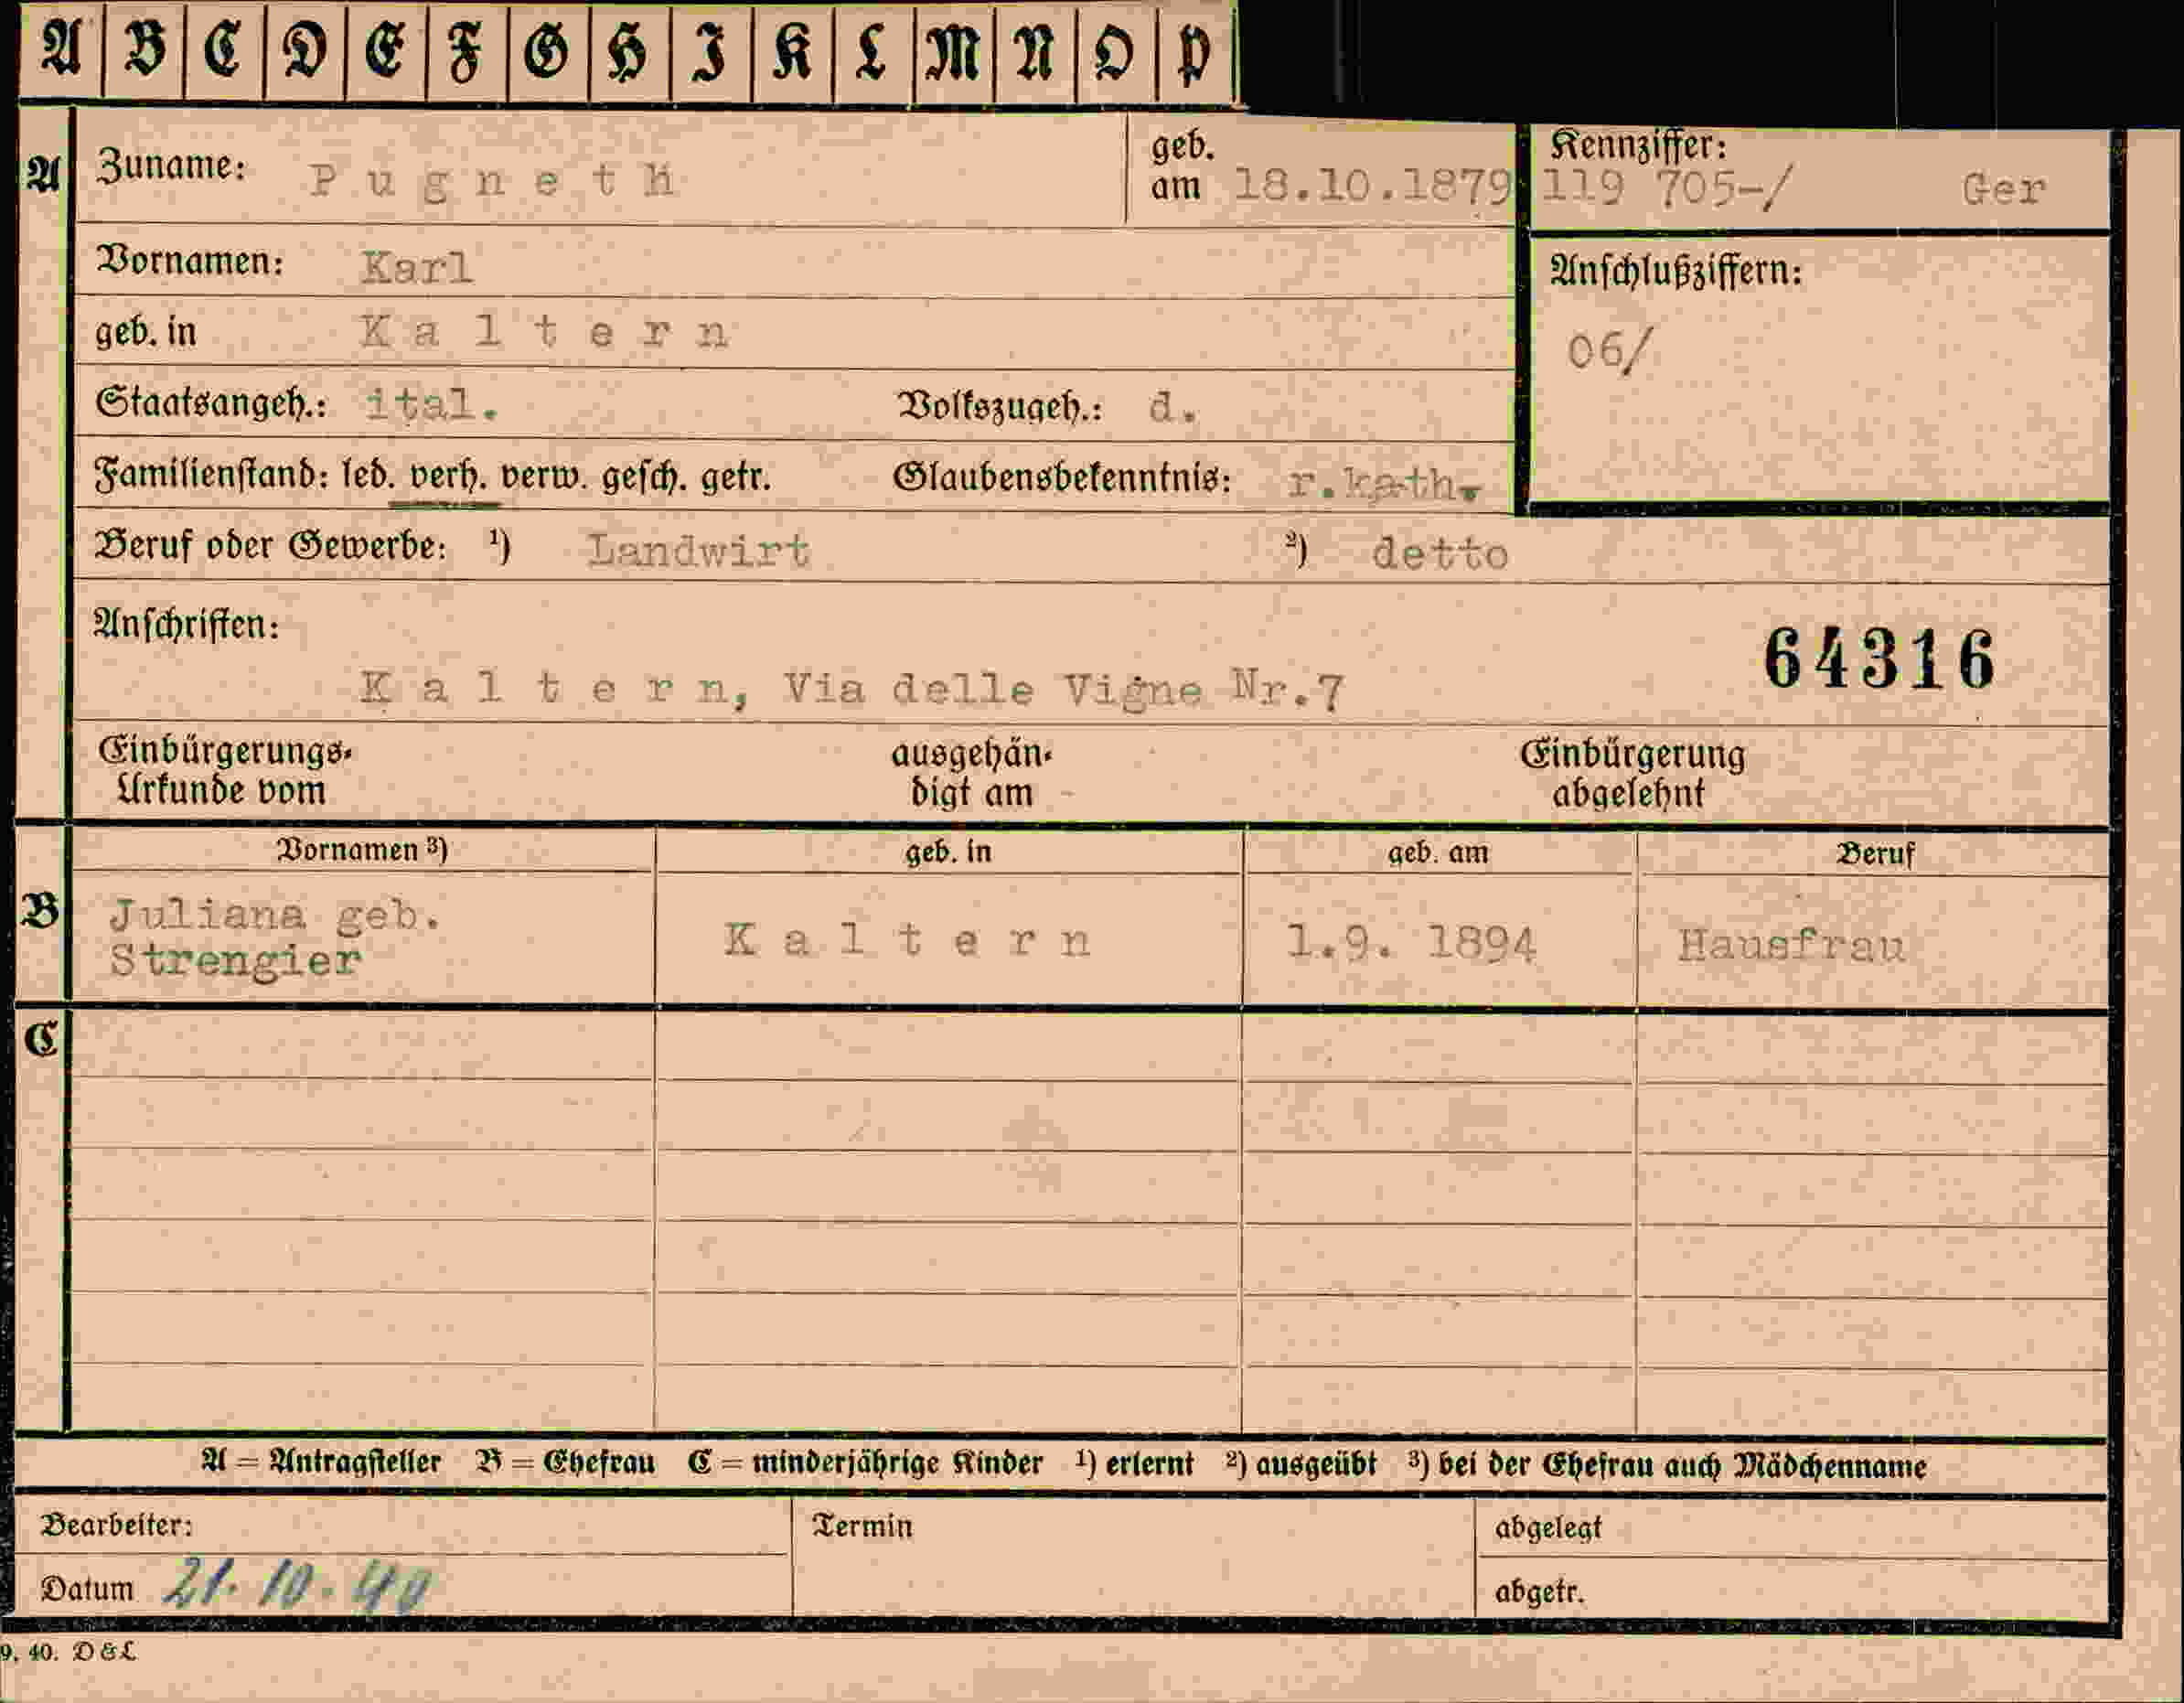 A B C D E F G H I K L M N O P
A Zuname: Pugneth geb. am 18.10.1879 Kennziffer: 119 705-/ Ger
Vornamen: Karl Anschlußziffern:
geb. in Kaltern 06/
Staatsangeh.: ital. Volkszugeh.: d.
Familienstand: led. verh. verw. gesch. getr. Glaubensbekenntnis: r.kath.
Beruf oder Gewerbe: ¹) Landwirt ²) detto
Anschriften: 64316
Kaltern, Via delle Vigne Nr.7
Einbürgerungs- ausgehän- Einbürgerung
Urkunde vom digt am abgelehnt
Vornamen ³) geb. in geb. am Beruf
B Juliana geb. Kaltern 1.9. 1894 Hausfrau
Strengier
C
A = Antragsteller B = Ehefrau C = minderjährige Kinder ¹) erlernt ²) ausgeübt ³) bei der Ehefrau auch Mädchenname
Bearbeiter: Termin abgelegt
Datum 21.10.40 abgetr.
9. 40. D & L